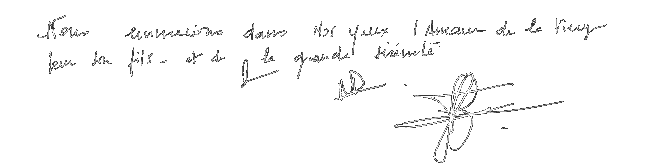 Nous emmenions dans nos yeux l'Amour de la Vierge
pour son fils - et de la grande sérénité